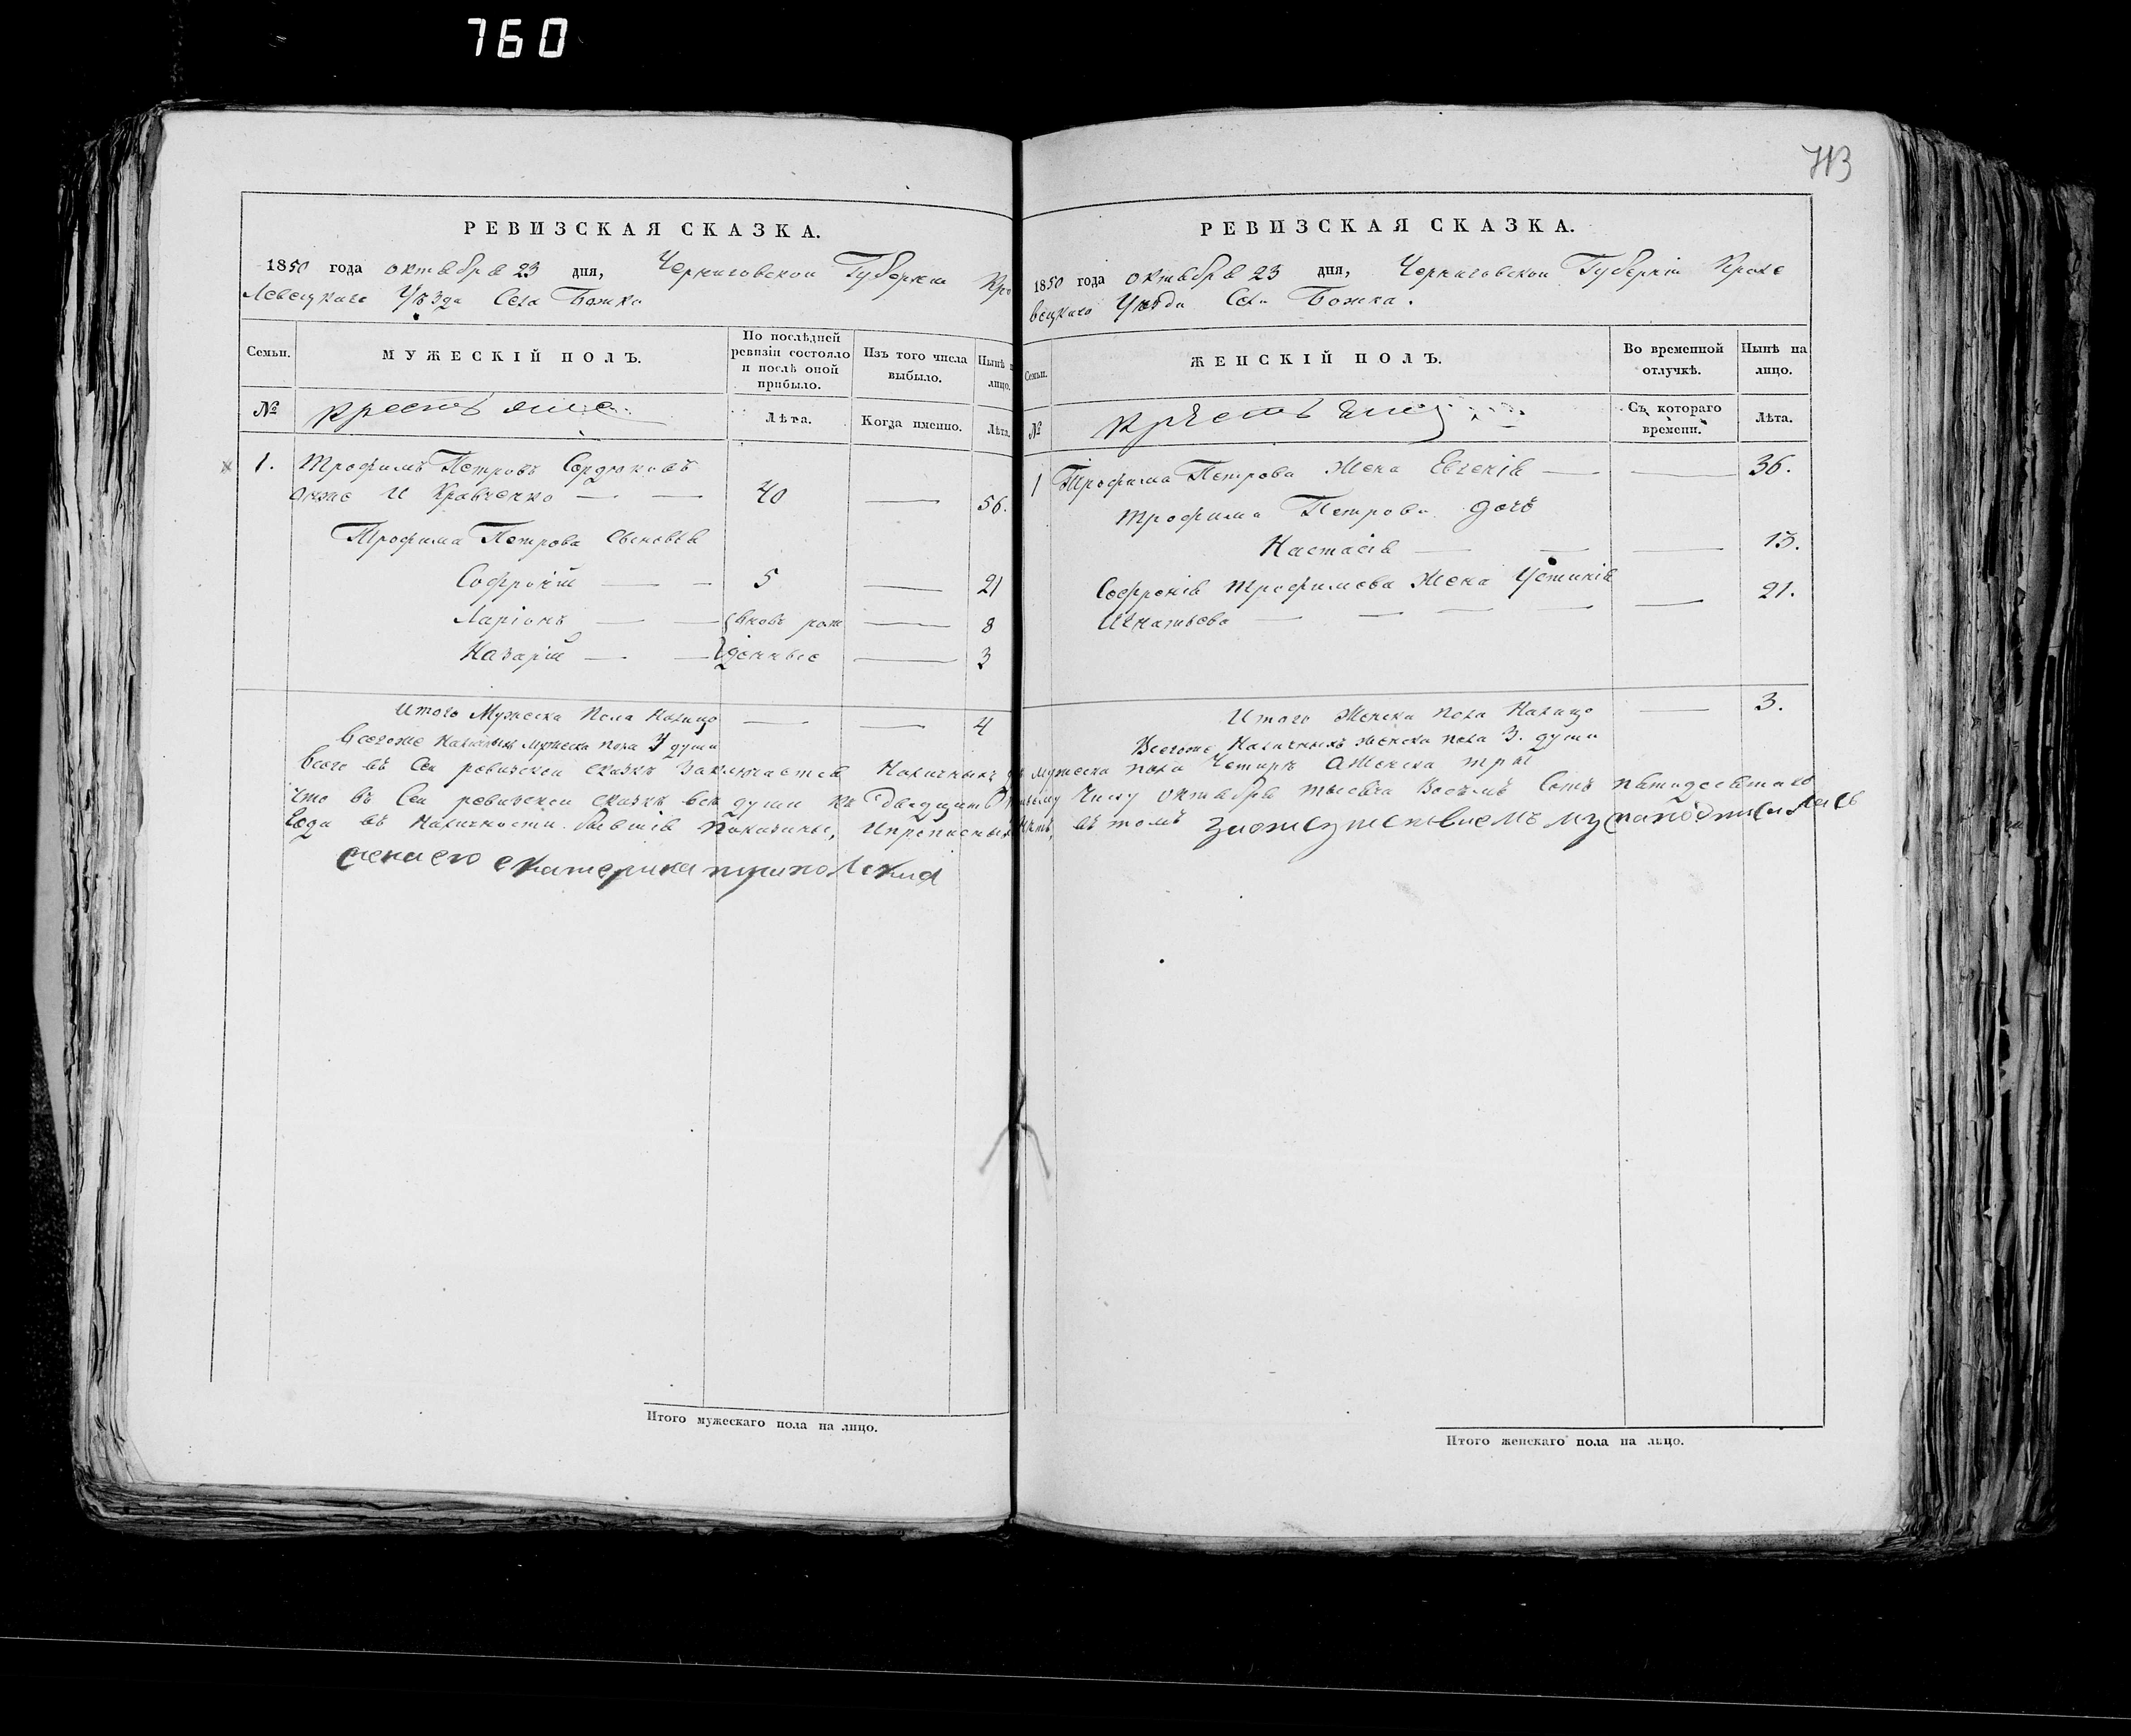 760
РЕВИЗСКАЯ СКАЗКА.
1850 года октября 23 дня, Черниговской Губернии Кро
левецкаго Уѣзда Села Божка
Семьи.
МУЖЕСКІЙ ПОЛЪ.
По послѣдней
ревизіи состояло
и послѣ оной
прибыло.
Изъ того числа
выбыло.
Нынѣ н
лицо.
№
Крестьяне
Лѣта.
Когда именно.
Лѣта.
1. Трофимъ Петровъ Сердюковъ
онже и Кравченко — — 40 — 56.
Трофима Петрова сыновья
Софроній — — 5 — 21
Ларіонъ — — вновь рож — 8
Назарій — — денные — 3
Итого Мужеска пола налицо — — 4
Всегоже наличныхъ мужеска пола душъ
Всего въ сей ревизской сказкѣ заключается наличныхъ
что въ сей ревизской сказкѣ всѣ души къ двадцать
года въ наличности бывшія показаны, ипрописныхъ
жена его екатерина
Итого мужескаго пола на лицо.
713
РЕВИЗСКАЯ СКАЗКА.
1850 года октября 23 дня, Черниговской Губерніи Кроле
вецкаго Уѣзда Села Божка.
Семьи.
ЖЕНСКІЙ ПОЛЪ.
Во временной
отлучкѣ.
Нынѣ на
лицо.
№
Съ котораго
времени.
Лѣта.
1 Трофима Петрова жена Евгенія — — 36.
Трофима Петрова дочь
Настасія — — — 13.
Софронія Трофимова жена Устинія
Игнатьева — — — — — 21.
Итого женска пола налицо — 3.
Всегоже наличныхъ женска пола 3. души
мужеска пола четыре аженска три
числу октября тысяча восемь сотъ пятидесятаго
нѣтъ, въ томъ
Итого женскаго пола на лицо.